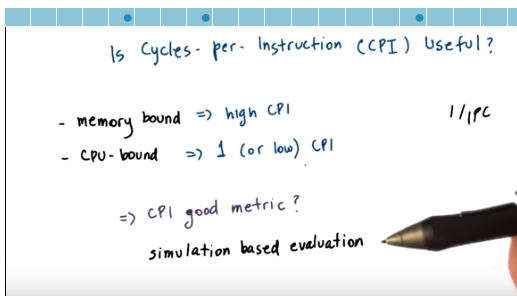 Is Cycles-per-Instruction (CPI) Useful?
- memory bound => high CPI
1/IPC
- CPU-bound => 1 (or low) CPI
=> CPI good metric?
simulation based evaluation